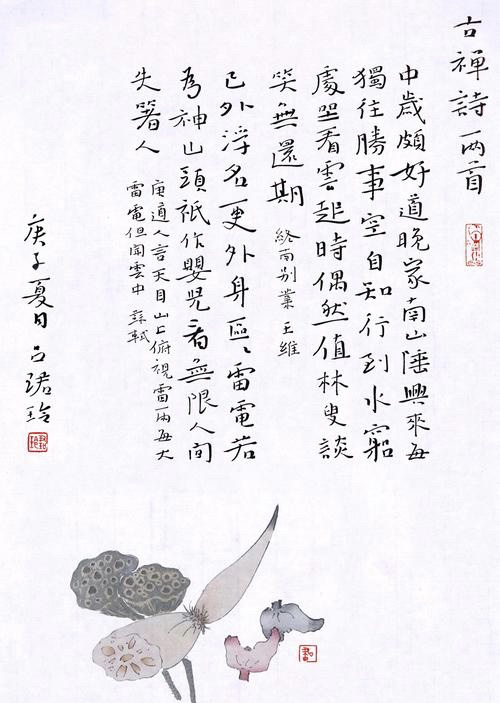 古禪詩兩首
中歲頗好道晚家南山陲興來每
獨往勝事空自知行到水窮
處坐看雲起時偶然值林叟談
笑無還期 終南別業 王維
已外浮名更外身區〻雷電若
為神山頭祇作嬰兒看無限人間
失箸人
唐道人言天目山上俯視雷雨每大
雷電但聞雲中 蘇軾
庚子夏日呂珺玲